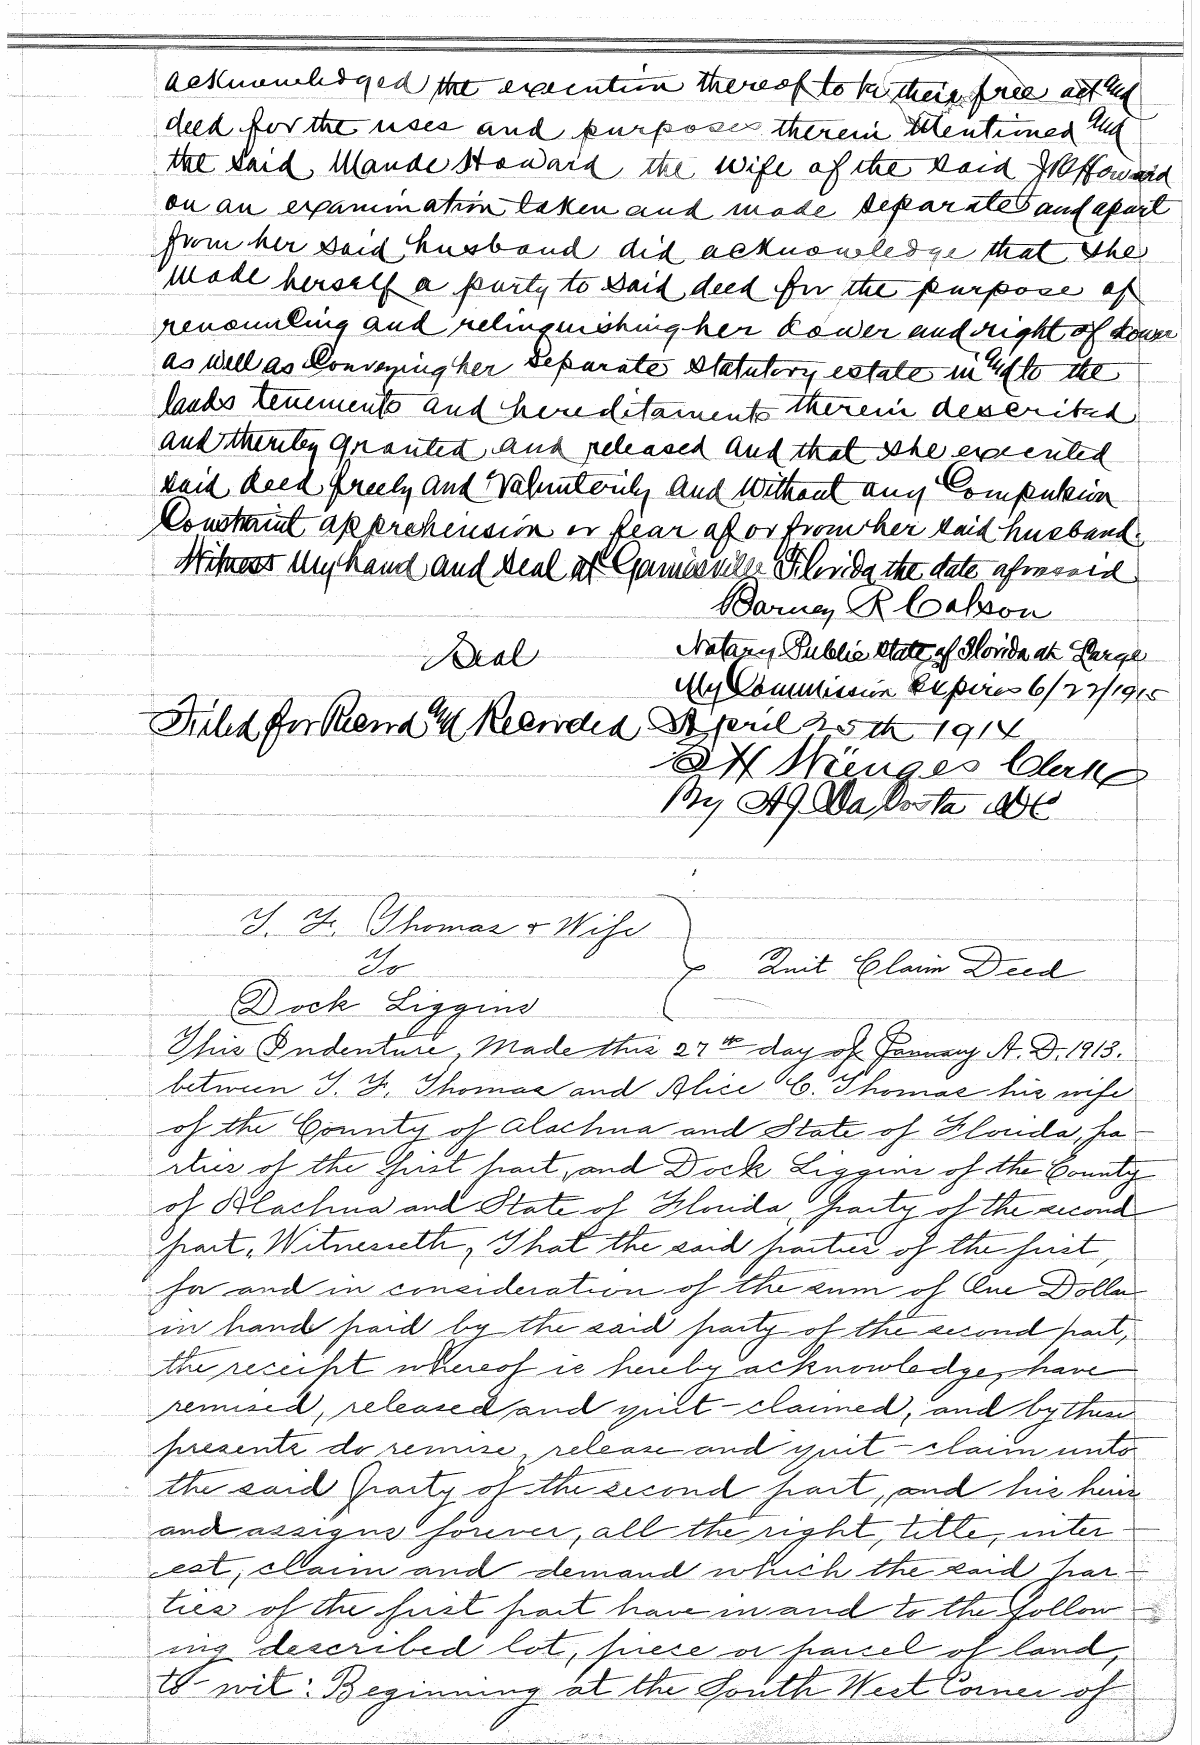 acknowledged the execution thereof to be their free act and
deed for the uses and purposes therein mentioned and
the said Maude Howard the wife of the said J R Howard
on an examination taken and made separate and apart
from her said husband did acknowledge that she
made herself a party to said deed for the purpose of
renouncing and relinquishing her dower and right of dower
as well as Conveying her separate statutory estate in and to the
lands tenements and hereditaments therein described
and thereby granted and released and that she executed
said deed freely and Voluntarily and Without any Compulsion
Constraint apprehension or fear of or from her said husband.
Witness My hand and seal at Gainesville Florida the date aforesaid
Barney R Colson
Seal Notary Public State of Florida at Large
My Commission Expires 6/22/1915
Filed for Record and Recorded April 25th 1914
S H Wienges Clerk
By A J DaCosta DC
T. F. Thomas & Wife
To Quit Claim Deed
Dock Liggins
This Indenture, Made this 27th day of January A. D. 1913.
between T. F. Thomas and Alice C. Thomas his wife
of the County of Alachua and State of Florida, pa-
rties of the first part, and Dock Liggins of the County
of Alachua and State of Florida, party of the second
part, Witnesseth, That the said parties of the first,
for and in consideration of the sum of One Dollar
in hand paid by the said party of the second part,
the receipt whereof is hereby acknowledge, have
remised, released and quit-claimed, and by these
presents do remise, release and quit-claim unto
the said party of the second part, and his heirs
and assigns forever, all the right, title, inter-
est, claim and demand which the said par-
ties of the first part have in and to the follow-
ing described lot, piece or parcel of land,
to-wit: Beginning at the South West Corner of